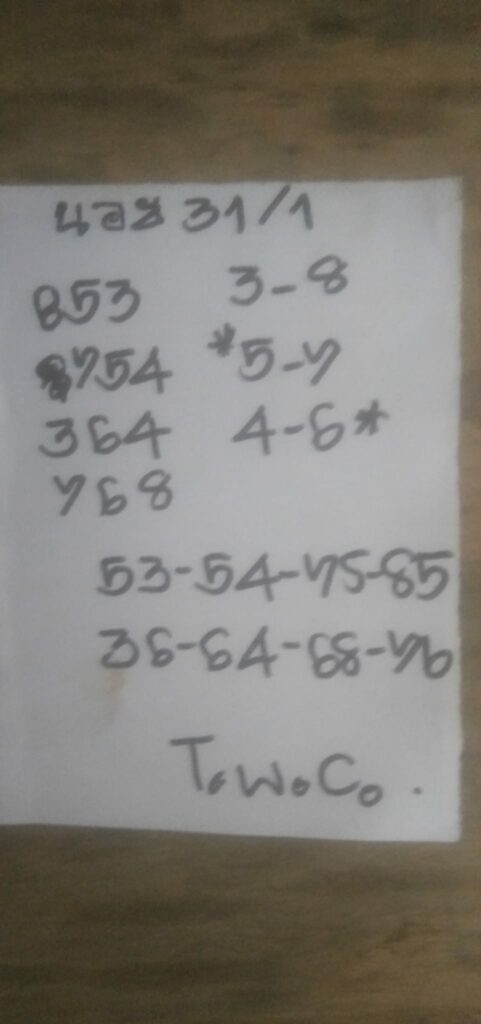 นอย 31/1
853 3-8
754 *5-7
364 4-6*
768
53-54-75-85
36-64-68-76
T.W.C.